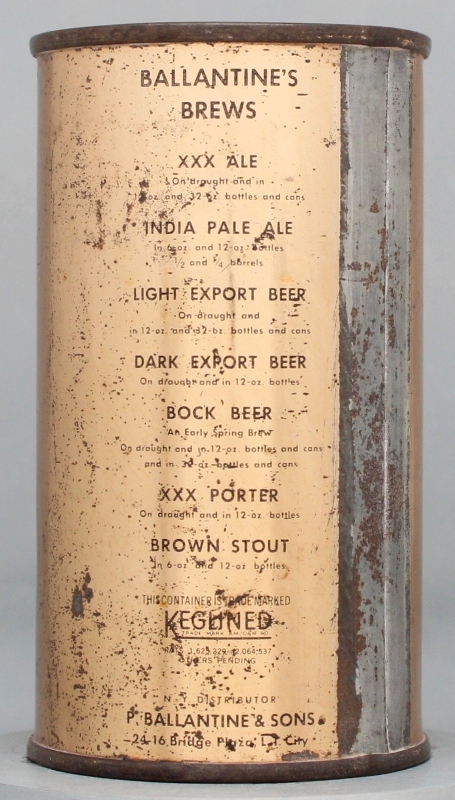 BALLANTINE'S
BREWS
XXX ALE
On draught and in
oz. and 32-oz. bottles and cans
INDIA PALE ALE
In 6-oz. and 12-oz. bottles
1/2 and 1/4 barrels
LIGHT EXPORT BEER
On draught and
in 12-oz. and 32-oz. bottles and cans
DARK EXPORT BEER
On draught and in 12-oz. bottles
BOCK BEER
An Early Spring Brew
On draught and in 12-oz. bottles and cans
and in 32-oz. bottles and cans
XXX PORTER
On draught and in 12-oz. bottles
BROWN STOUT
In 6-oz. and 12-oz. bottles
THIS CONTAINER IS TRADE MARKED
KEGLINED
TRADE MARK AM. CAN CO.
PATS. 1,625,229-2,064,537
OTHERS PENDING
N. Y. DISTRIBUTOR
P. BALLANTINE & SONS
24-16 Bridge Plaza, L.I. City